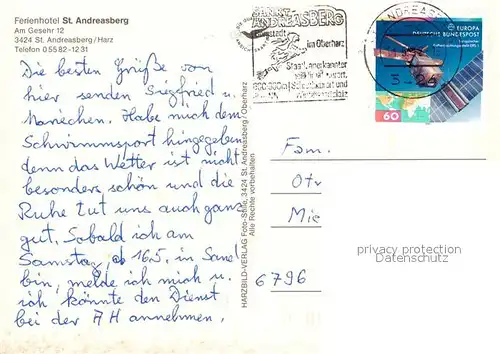 Ferienhotel St. Andreasberg
Am Gesehr 12
3424 St. Andreasberg/Harz
Telefon 0 55 82 - 12 31
Die besten Grüße von
hier senden Siegfried u.
Hanichen. Habe mich dem
Schwimmsport hingegeben,
denn das Wetter ist nicht
besonders schön und die
Ruhe tut uns auch ganz
gut. Sobald ich am
Samstag, 16.5, in
bin, melde ich mich u.
ich könnte den Dienst
bei der AH annehmen.
HARZBILD-VERLAG Foto-Stille, 3424 St. Andreasberg/Oberharz
Alle Rechte vorbehalten
SANKT
ANDREASBERG
im Oberharz
Staatl. anerkannter
ANDREASB
EUROPA
DEUTSCHE BUNDESPOST
60
Fam.
Otr
Mic
6796
privacy protection
Datenschutz